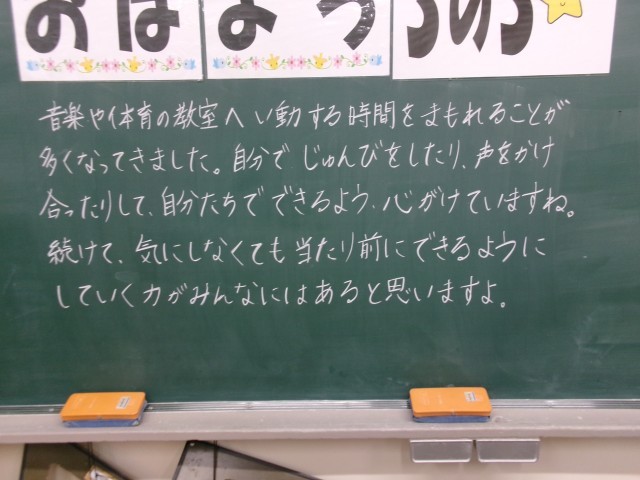 おはよう
音楽や体育の教室へい動する時間をまもれることが
多くなってきました。自分でじゅんびをしたり、声をかけ
合ったりして、自分たちでできるよう、心がけていますね。
続けて、気にしなくても当たり前にできるように
していく力がみんなにはあると思いますよ。